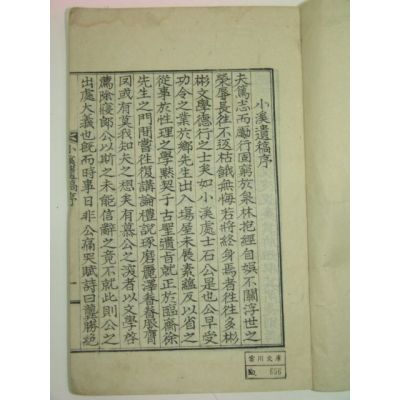 小溪遺稿序
夫篤志而勵行固窮於泉林抱經自娛不關浮世之
榮辱長往不返枯餓無悔若將終身焉者往往多彬
彬文學德行之士矣如小溪處士石公是也公早受
功令之業於鄕先生出入場屋未展素蘊反以省之
從事於性理之學默契于古聖遺旨就正於臨齋徐
先生之門間嘗往復講論禮說琢磨麗澤眷眷
因或有莫我知夫之想矣有慕公之深者以文學啓
薦除寢郞公以斯之未能信辭之竟不就此則公之
出處大義也旣而時事日非公痛哭賦詩曰
小溪遺稿序
一
雲川文庫
No. 656